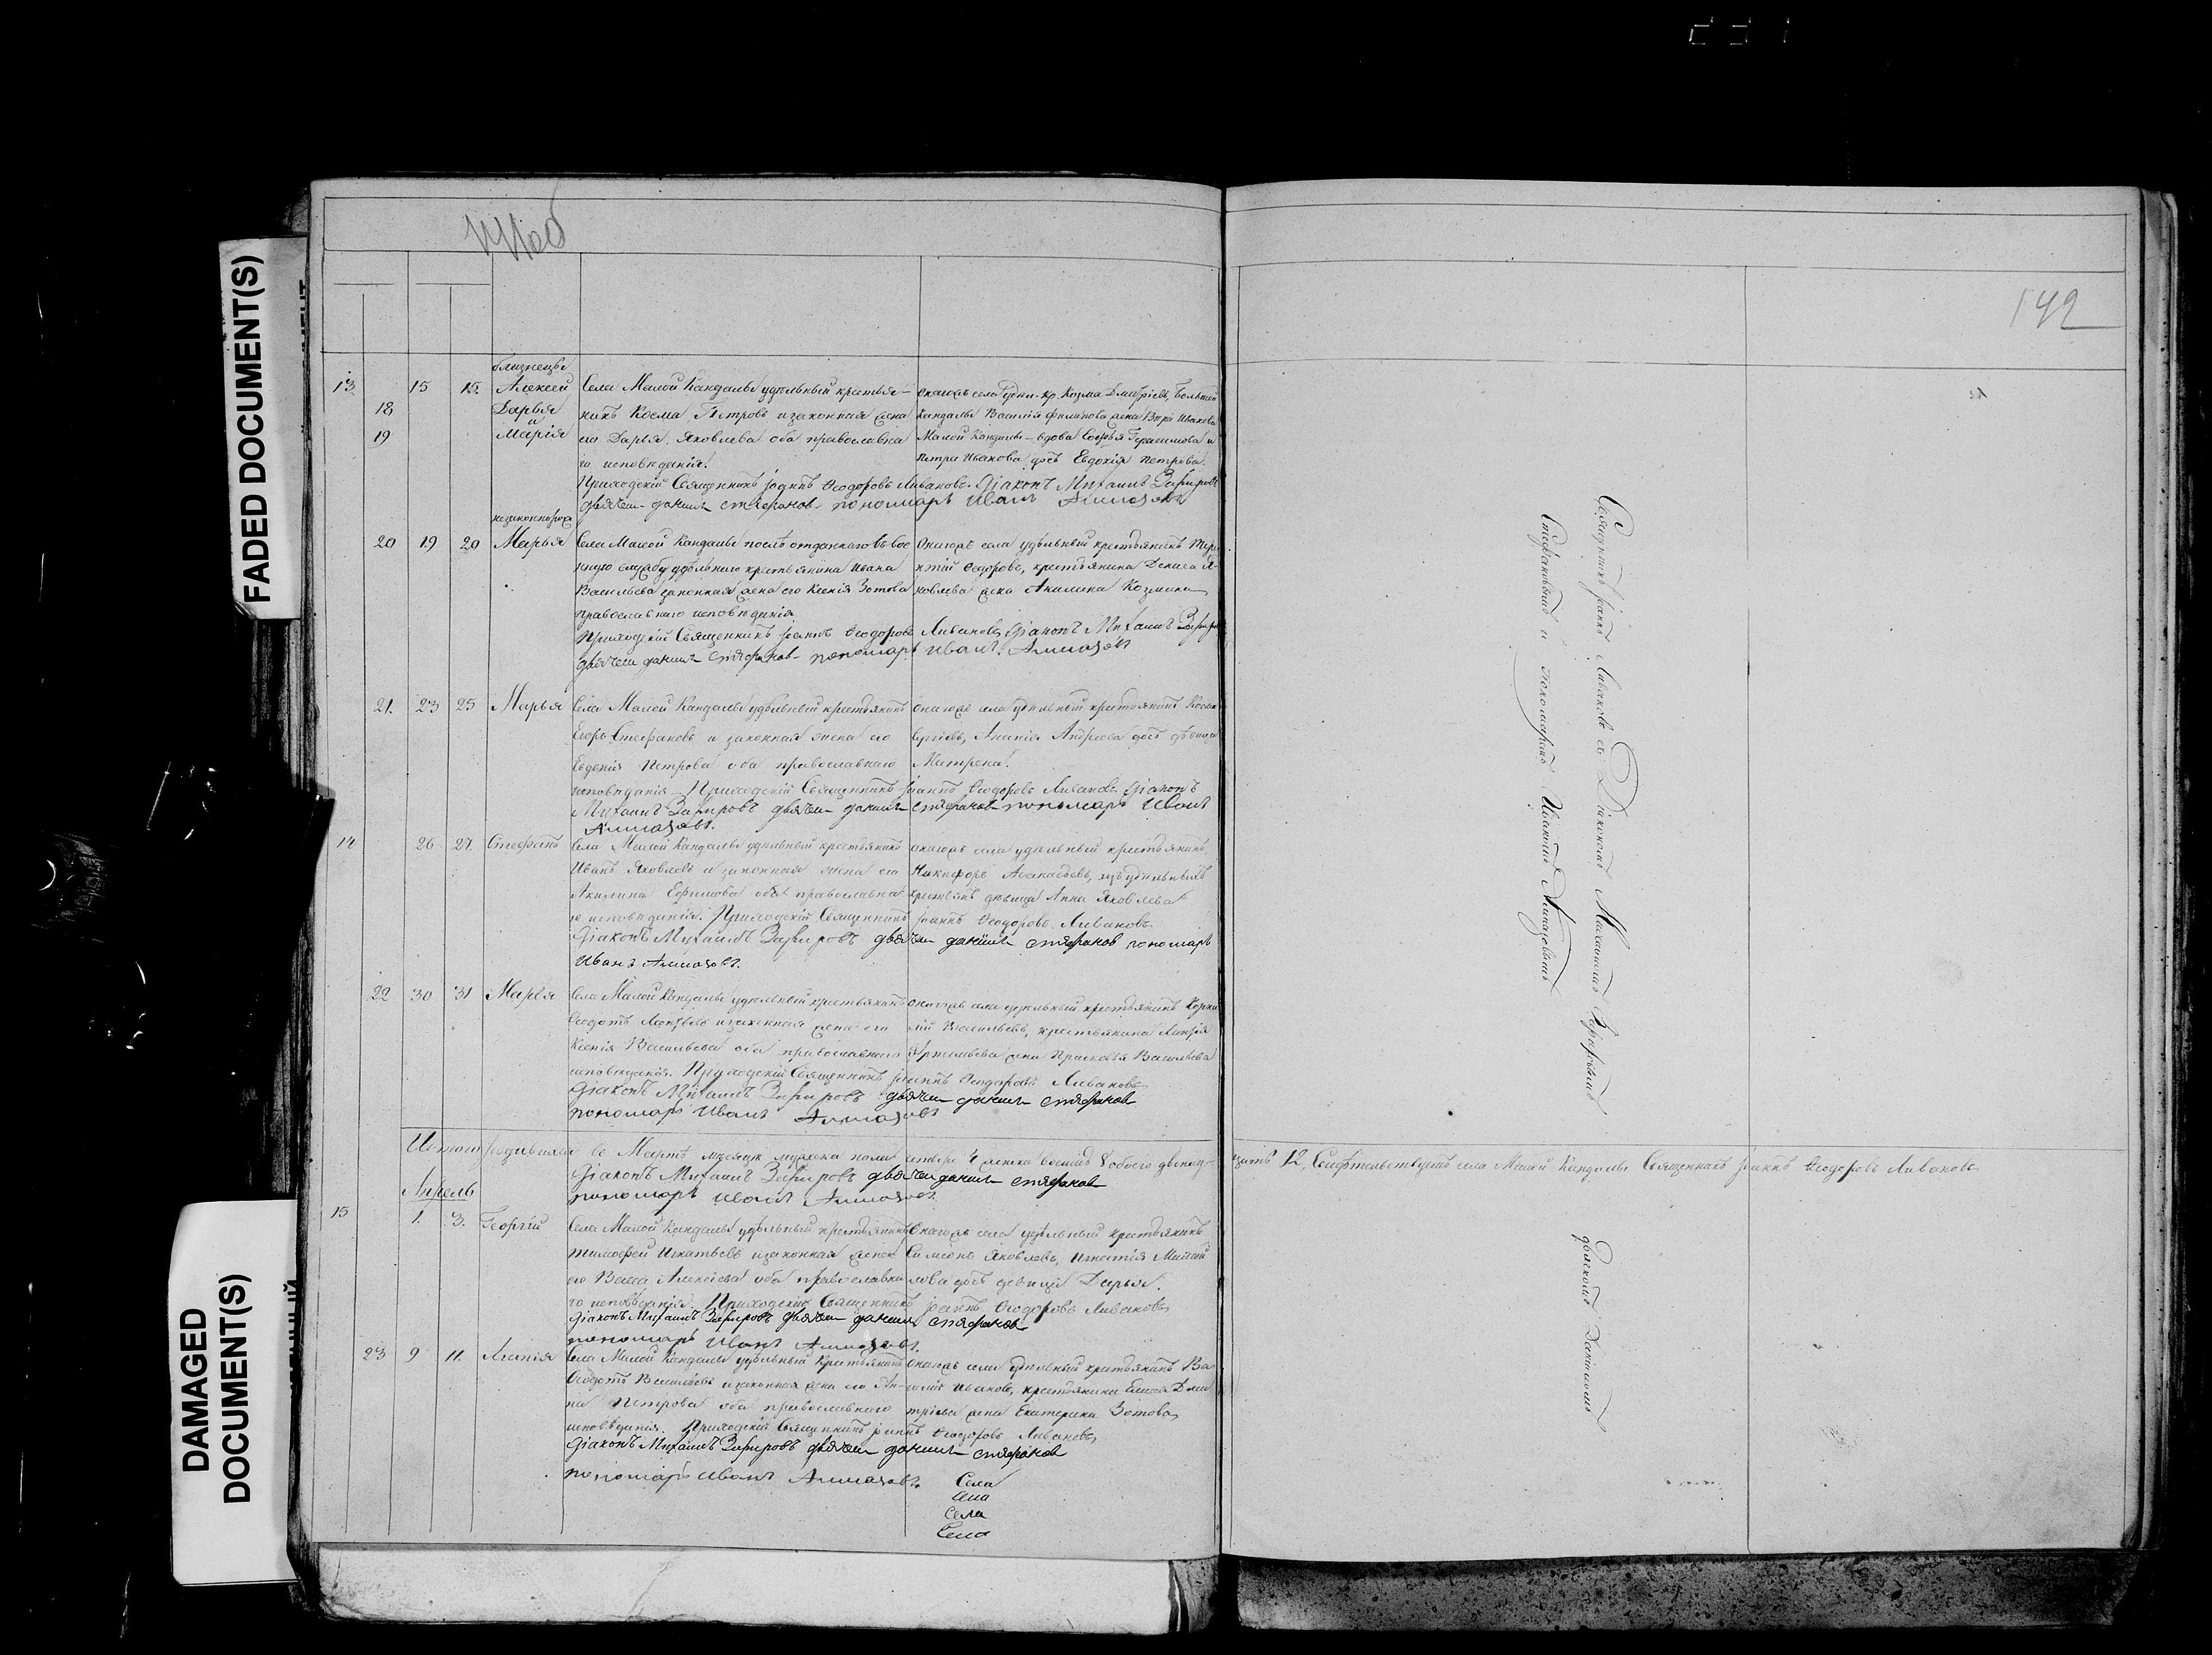 FADED DOCUMENT(S)
DAMAGED
DOCUMENT(S)
142
близнецы
13 15 15 Алексей Села Малой Кандалы удѣльный крестья-
18 Дарья нинъ Косма Петровъ и законная жена
и
19 Марія его Дарья Яковлева оба православна
го исповѣданія.
онагожъ села удѣл. кр. Козма Дмитріевъ, Большой
Кандалы Василія Филипова жена Вѣра Иванова
Малой Кандалы вдова Софья Герасимова и
Петра Иванова дочь Евдокія Петрова.
Приходскій Священникъ Іоаннъ Ѳеодоровъ Ливановъ. Діаконъ Михаилъ Зефировъ
дьячекъ Данилъ Стефановъ пономарь Иванъ Алмазовъ
20 19 20 Марья Села Малой Кандалы послѣ отданнаго въ вое
нную службу удѣльнаго крестьянина Ивана
Васильева законная жена его Ксенія Зотова
православнаго исповѣданія
Онагожъ села удѣльный крестьянинъ
Ѳедоровъ, крестьянина Дениса Я-
ковлева жена Акилина Козмина
Приходскій Священникъ Іоаннъ Ѳеодоровъ Ливановъ Діаконъ Михаилъ
дьячекъ Данилъ Стефановъ пономарь Иванъ Алмазовъ
21 23 25 Марья Села Малой Кандалы удѣльный крестьянинъ
Егоръ Стефановъ и законная жена его
Евдокія Петрова оба православнаго
онагожъ села удѣльный крестьянинъ
Сергіевъ, Андреева дочь дѣвица
Матрена.
исповѣданія Приходскій Священникъ Іоаннъ Ѳеодоровъ Ливановъ Діаконъ
Михаилъ Зефировъ дьячекъ Данилъ Стефановъ пономарь Иванъ
Алмазовъ.
14 26 27 Стефанъ Села Малой Кандалы удѣльный крестьянинъ
Иванъ Яковлевъ и законная жена его
Акилина Ефимова оба православна
онагожъ села удѣльный крестьянинъ
Никифоръ Аѳанасьевъ, изъ удѣльныхъ
крестьянъ дѣвица Анна Яковлева
го исповѣданія. Приходскій Священникъ Іоаннъ Ѳеодоровъ Ливановъ
Діаконъ Михаилъ Зефировъ дьячекъ Данилъ Стефановъ пономарь
Иванъ Алмазовъ.
22 30 31 Марья Села Малой Кандалы удѣльный крестьянинъ
Ѳедотъ Леонтьевъ и законная жена его
Ксенія Васильева оба православнаго
онагожъ села удѣльный крестьянинъ Корни
лій Васильевъ, крестьянина
Артемьева жена Прасковья Васильева
исповѣданія. Приходскій Священникъ Іоаннъ Ѳеодоровъ Ливановъ
Діаконъ Михаилъ Зефировъ дьячекъ Данилъ Стефановъ
пономарь Иванъ Алмазовъ
Итого родившихся въ Мартѣ мѣсяцѣ мужеска пола 4 женска восемь 8 обоего двенад-
цать 12, Свидѣтельствуетъ села Малой Кандалы Священникъ Іоаннъ Ѳеодоровъ Ливановъ
Діаконъ Михаилъ Зефировъ дьячекъ Данилъ Стефановъ
пономарь Иванъ Алмазовъ
Апрель
15 1. 3. Георгій Села Малой Кандалы удѣльный крестьянинъ
Тимофей Игнатьевъ и законная жена
его Васса Алексіева оба православна
онагожъ села удѣльный крестьянинъ
Симеонъ Яковлевъ, Игнатія Михай
лова дочь дѣвица Дарья.
го исповѣданія. Приходскій Священникъ Іоаннъ Ѳеодоровъ Ливановъ
Діаконъ Михаилъ Зефировъ дьячекъ Данилъ Стефановъ
пономарь Иванъ Алмазовъ.
23 9 11. Агапія Села Малой Кандалы удѣльный крестьянинъ
Ѳедотъ Васильевъ и законная жена его Ан-
на Петрова оба православнаго
онагожъ села удѣльный крестьянинъ Ва-
силій Ивановъ, крестьянина Елисея Дми
тріева жена Екатерина Зотова
исповѣданія. Приходскій Священникъ Іоаннъ Ѳеодоровъ Ливановъ
Діаконъ Михаилъ Зефировъ дьячекъ Данилъ Стефановъ
пономарь Иванъ Алмазовъ
Села
Села
Села
Села
Священникъ Іоаннъ Ливановъ съ Діакономъ Михаиломъ Зефировымъ
Стефановымъ и пономаремъ Иваномъ Алмазовымъ
дьячкомъ Даниломъ